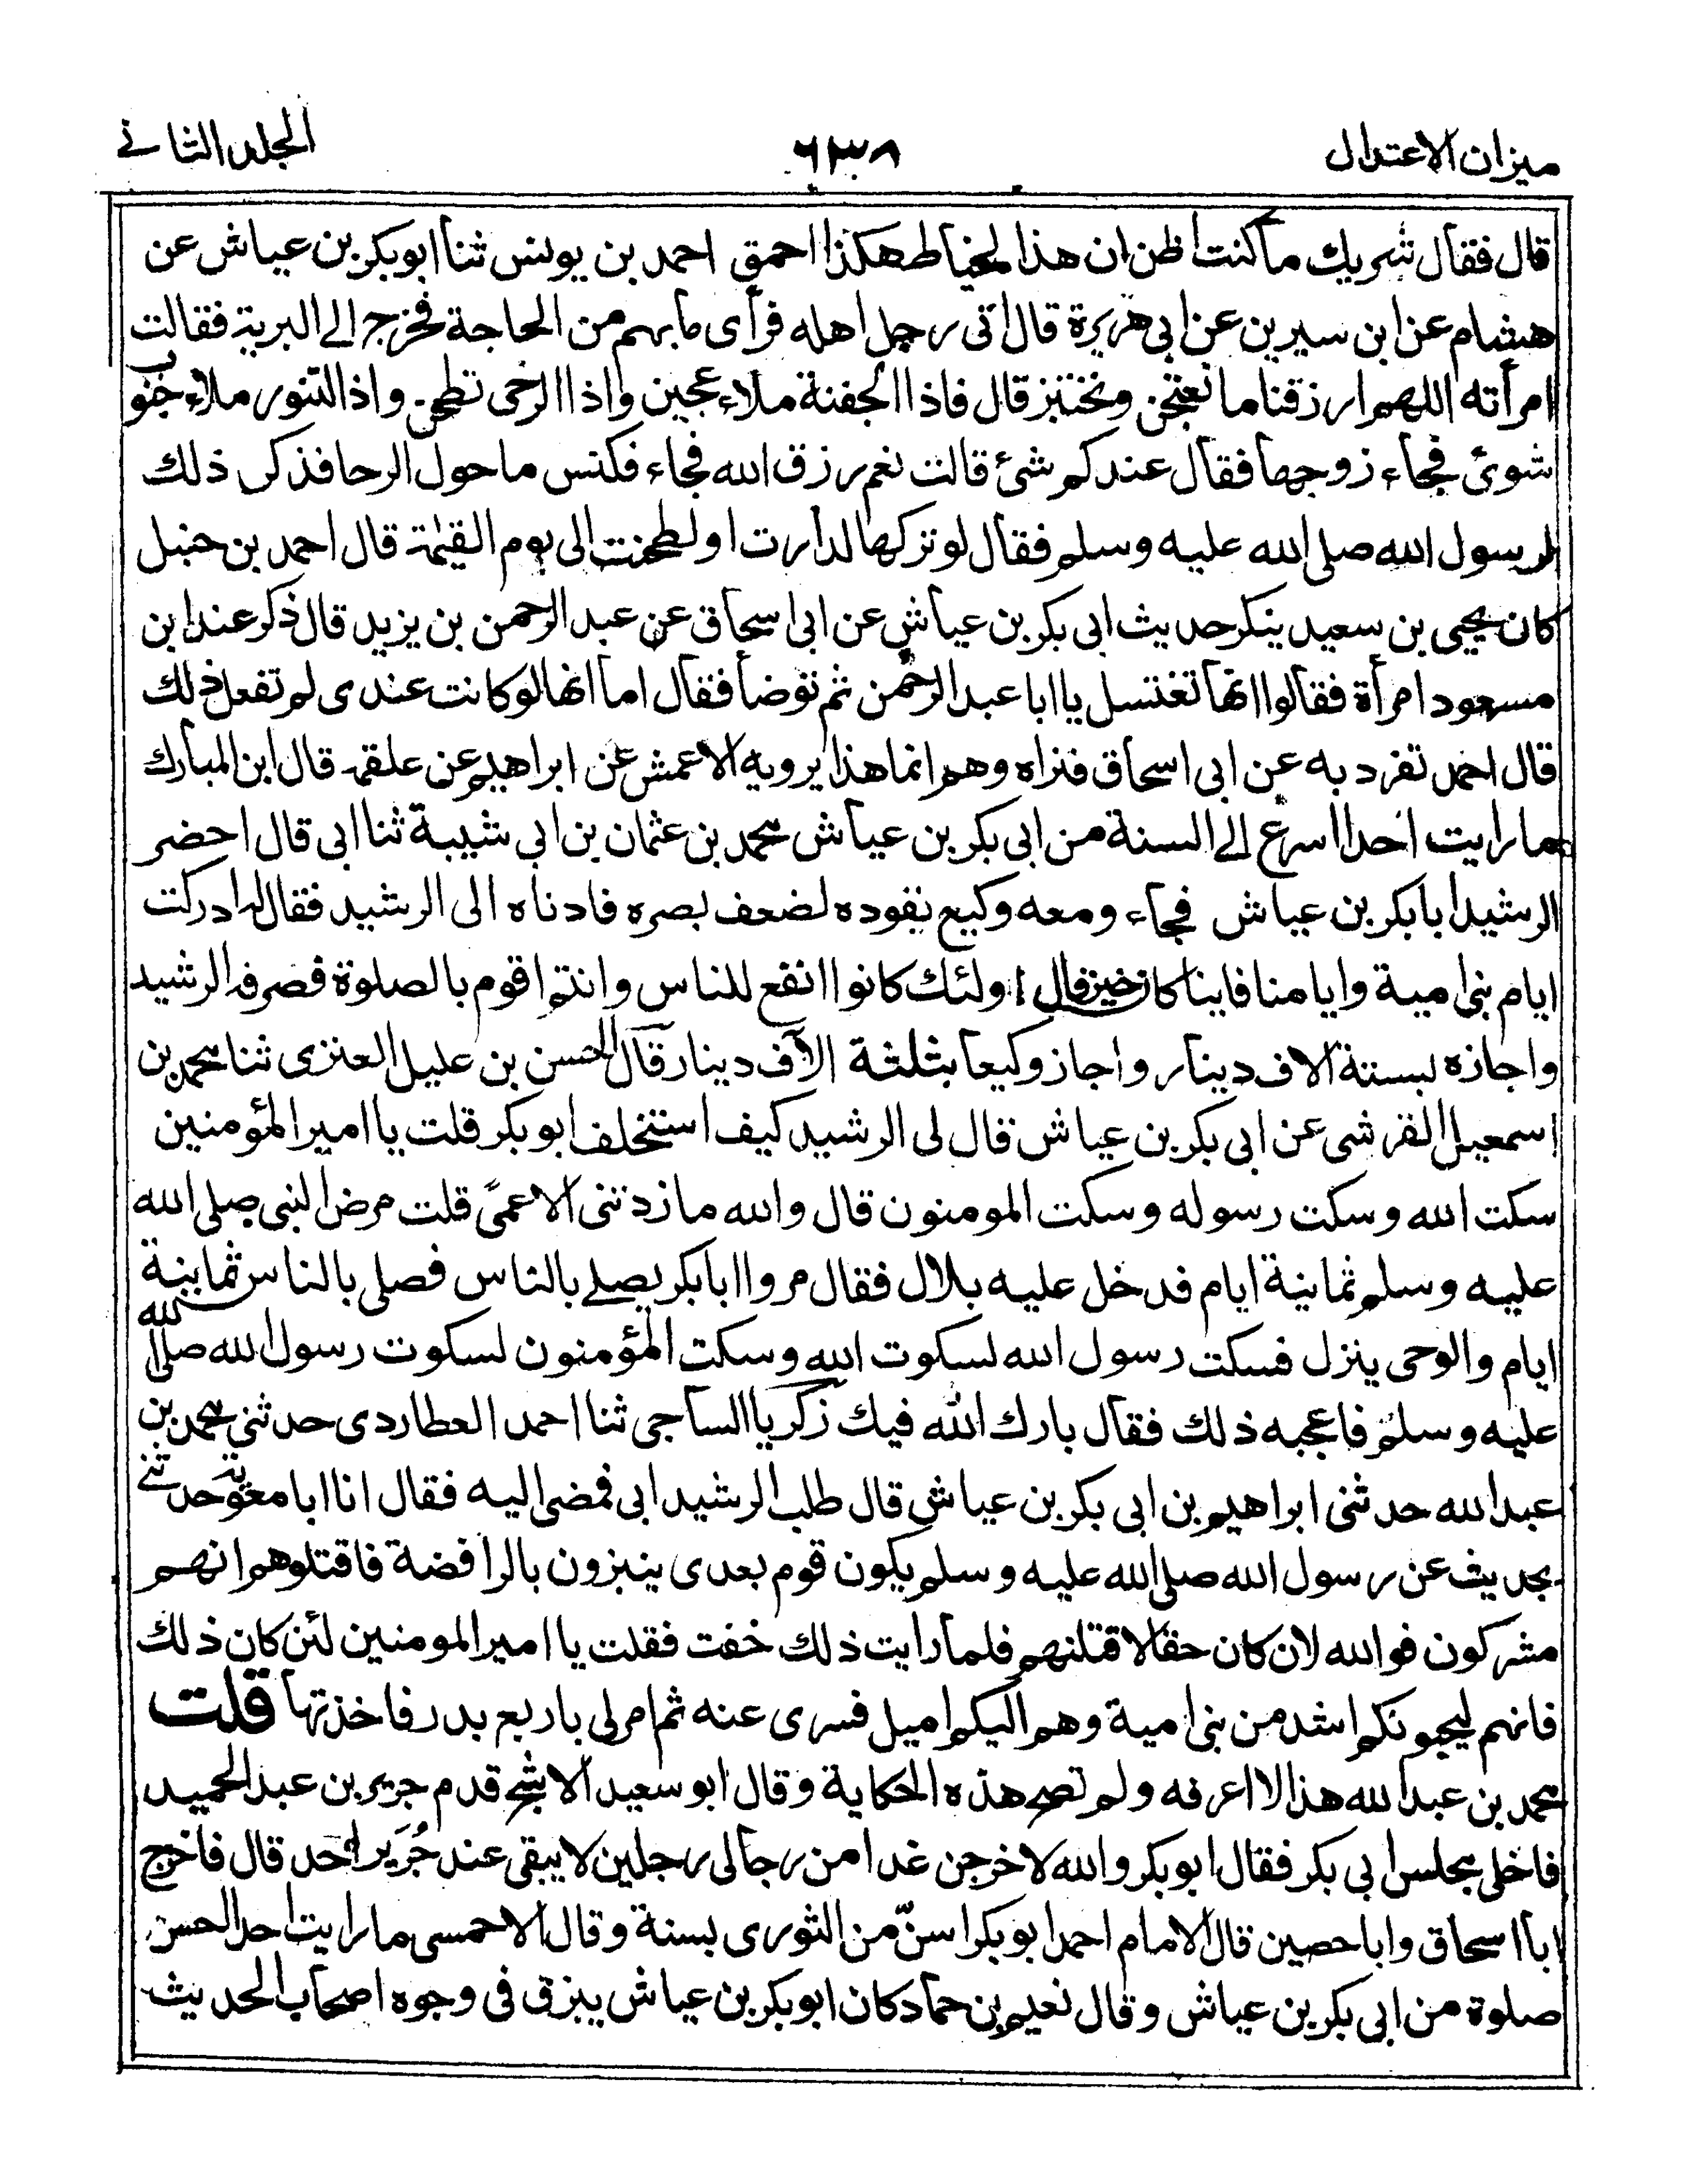 ميزان الاعتدال
٦٣٨
الجلد الثاني
قال فقال شريك ما كنت اظن ان هذا الخياط هكذا احمق احمد بن يونس ثنا ابو بكر بن عياش عن
هشام عن ابن سيرين عن ابى هريرة قال اتى رجل اهله فرأى ما بهم من الحاجة فخرج الى البرية فقالت
امرأته اللهم ارزقنا ما نعتجن ونختبز قال فاذا الجفنة ملاء عجين واذا الرحى تطحن واذ التنور ملاء جنوب
شوئ فجاء زوجها فقال عندكم شئ قالت نعم رزق الله فجاء فكنس ما حول الرحا فذكر ذلك
لرسول الله صلى الله عليه وسلم فقال لو تركها لدارت او لطحنت الى يوم القيٰمة قال احمد بن حنبل
كان يحيى بن سعيد ينكر حديث ابى بكر بن عياش عن ابى اسحاق عن عبد الرحمن بن يزيد قال ذكر عند ابن
مسعود امرأة فقالوا انها تغتسل يا ابا عبد الرحمن ثم توضأ فقال اما انها لو كانت عندى لم تفعل ذلك
قال احمد تفرد به عن ابى اسحاق فنراه وهم انما هذا يرويه الاعمش عن ابراهيم عن علقمة قال ابن المبارك
ما رايت احدا اسرع الى السنة من ابى بكر بن عياش محمد بن عثمان بن ابى شيبة ثنا ابى قال احضر
الرشيد ابا بكر بن عياش فجاء ومعه وكيع يقوده لضعف بصره فادناه الى الرشيد فقال له ادركت
ايام بنى امية وايامنا فاينا كان خير قال اولئك كانوا انفع للناس وانتم اقوم بالصلوة فصرفه الرشيد
واجازه بستة الاف دينار واجاز وكيعا بثلثة الآف دينار قال الحسن بن عليل العنزى ثنا محمد بن
اسمعيل القرشى عن ابى بكر بن عياش قال لى الرشيد كيف استخلف ابو بكر قلت يا امير المؤمنين
سكت الله وسكت رسوله وسكت المومنون قال والله ما زدتنى الا عمًى قلت مرض النبى صلى الله
عليه وسلم ثمانية ايام فدخل عليه بلال فقال مروا ابا بكر يصلى بالناس فصلى بالناس ثمانية
ايام والوحى ينزل فسكت رسول الله لسكوت الله وسكت المؤمنون لسكوت رسول الله صلى الله
عليه وسلم فاعجبه ذلك فقال بارك الله فيك زكريا الساجى ثنا احمد العطاردى حدثنى محمد بن
عبد الله حدثنى ابراهيم بن ابى بكر بن عياش قال طلب الرشيد ابى فمضى اليه فقال انا ابا معوية حدثنى
بحديث عن رسول الله صلى الله عليه وسلم يكون قوم بعدى ينبزون بالرافضة فاقتلوهم انهم
مشركون فوالله لان كان حقا لاقتلنهم فلما رايت ذلك خفت فقلت يا امير المومنين لئن كان ذلك
فانهم ليحبونكم اشد من بنى امية وهم اليكم اميل فسرى عنه ثم امر لى باربع بدر فاخذتها قلت
محمد بن عبد الله هذا لا اعرفه ولم تصح هذه الحكاية وقال ابو سعيد الاشج قدم جرير بن عبد الحميد
فاخلى مجلس ابى بكر فقال ابو بكر والله لاخرجن غدا من رجالى رجلين لا يبقى عند جرير احد قال فاخرج
ابا اسحاق وابا حصين قال الامام احمد ابو بكر اسنّ من الثورى بسنة وقال الاحمسى ما رايت احدا احسن
صلوة من ابى بكر بن عياش وقال نعيم بن حماد كان ابو بكر بن عياش يبزق فى وجوه اصحاب الحديث